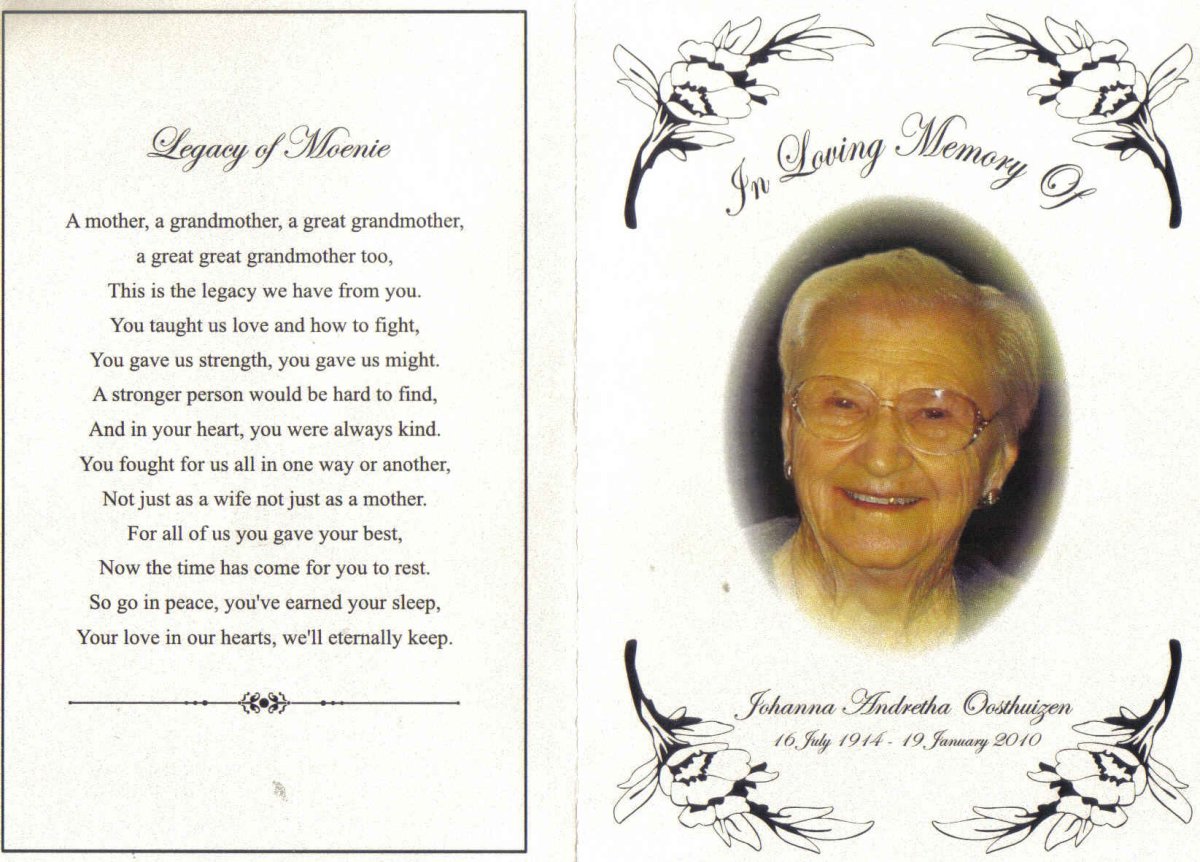 Legacy of Moenie
A mother, a grandmother, a great grandmother,
a great great grandmother too,
This is the legacy we have from you.
You taught us love and how to fight,
You gave us strength, you gave us might.
A stronger person would be hard to find,
And in your heart, you were always kind.
You fought for us all in one way or another,
Not just as a wife not just as a mother.
For all of us you gave your best,
Now the time has come for you to rest.
So go in peace, you've earned your sleep,
Your love in our hearts, we'll eternally keep.
In Loving Memory Of
Johanna Andretha Oosthuizen
16 July 1914 - 19 January 2010